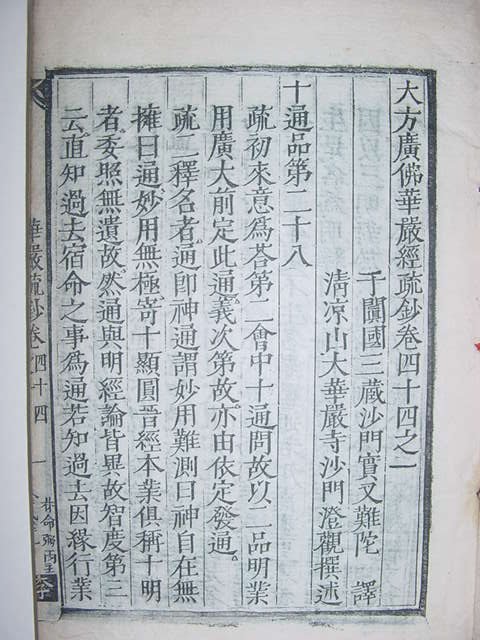 大方廣佛華嚴經疏鈔卷四十四之一
于闐國三藏沙門實叉難陀 譯
清凉山大華嚴寺沙門澄觀撰述
十通品第二十八
疏初來意為荅第二會中十通問故以二品明業
用廣大前定此通義次第故亦由依定發通
疏二釋名者通即神通謂妙用難測曰神自在無
擁曰通妙用無極寄十顯圓晉經本業俱稱十明
者委照無遺故然通與明經論皆異故智度第三
云直知過去宿命之事為通若知過去因緣行業
華嚴疏鈔卷四十四 一